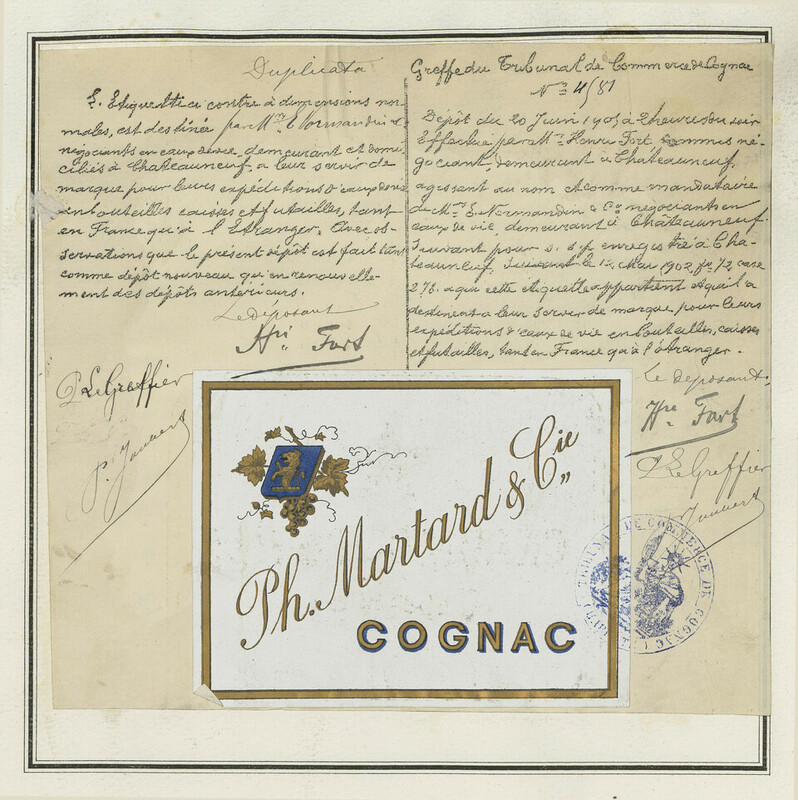 Duplicata
L'Etiquette ci contre à dimensions nor
males, est destinée par MM. E. Normandin & Cie
négociants en eaux de vie, demeurant et domi
ciliés à Châteauneuf, a leur servir de
marque pour leurs expéditions d'eaux de vie
en bouteilles caisses et futailles, tant
en France qu'à l'Etranger, avec ob-
servations que le présent dépôt est fait tant
comme dépôt nouveau qu'en renouvelle-
ment des dépôts antérieurs.
Le déposant
Hri Fort
P. Le Greffier
P. Jaubert
Greffe du Tribunal de Commerce de Cognac
No 4/81
Dépôt du 20 Juin 1905 à 2 heures du soir
Effectué par Mr Henri Fort commis né-
gociant, demeurant à Châteauneuf,
agissant au nom et comme mandataire
de MM. E. Normandin & Cie négociants en
eaux de vie, demeurant à Châteauneuf.
Suivant pour s. s. p. enregistré à Châ-
teauneuf, le 12 Mai 1902, fo 72, case
276. qui cette étiquette appartient et qu'il a
destinent a leur servir de marque pour leurs
expéditions d'eaux de vie en bouteilles, caisses
et futailles, tant en France qu'à l'étranger.
Le déposant.
Hri Fort
P. Le Greffier
Jaubert
Ph. Martard & Cie
COGNAC
TRIBUNAL DE COMMERCE DE COGNAC